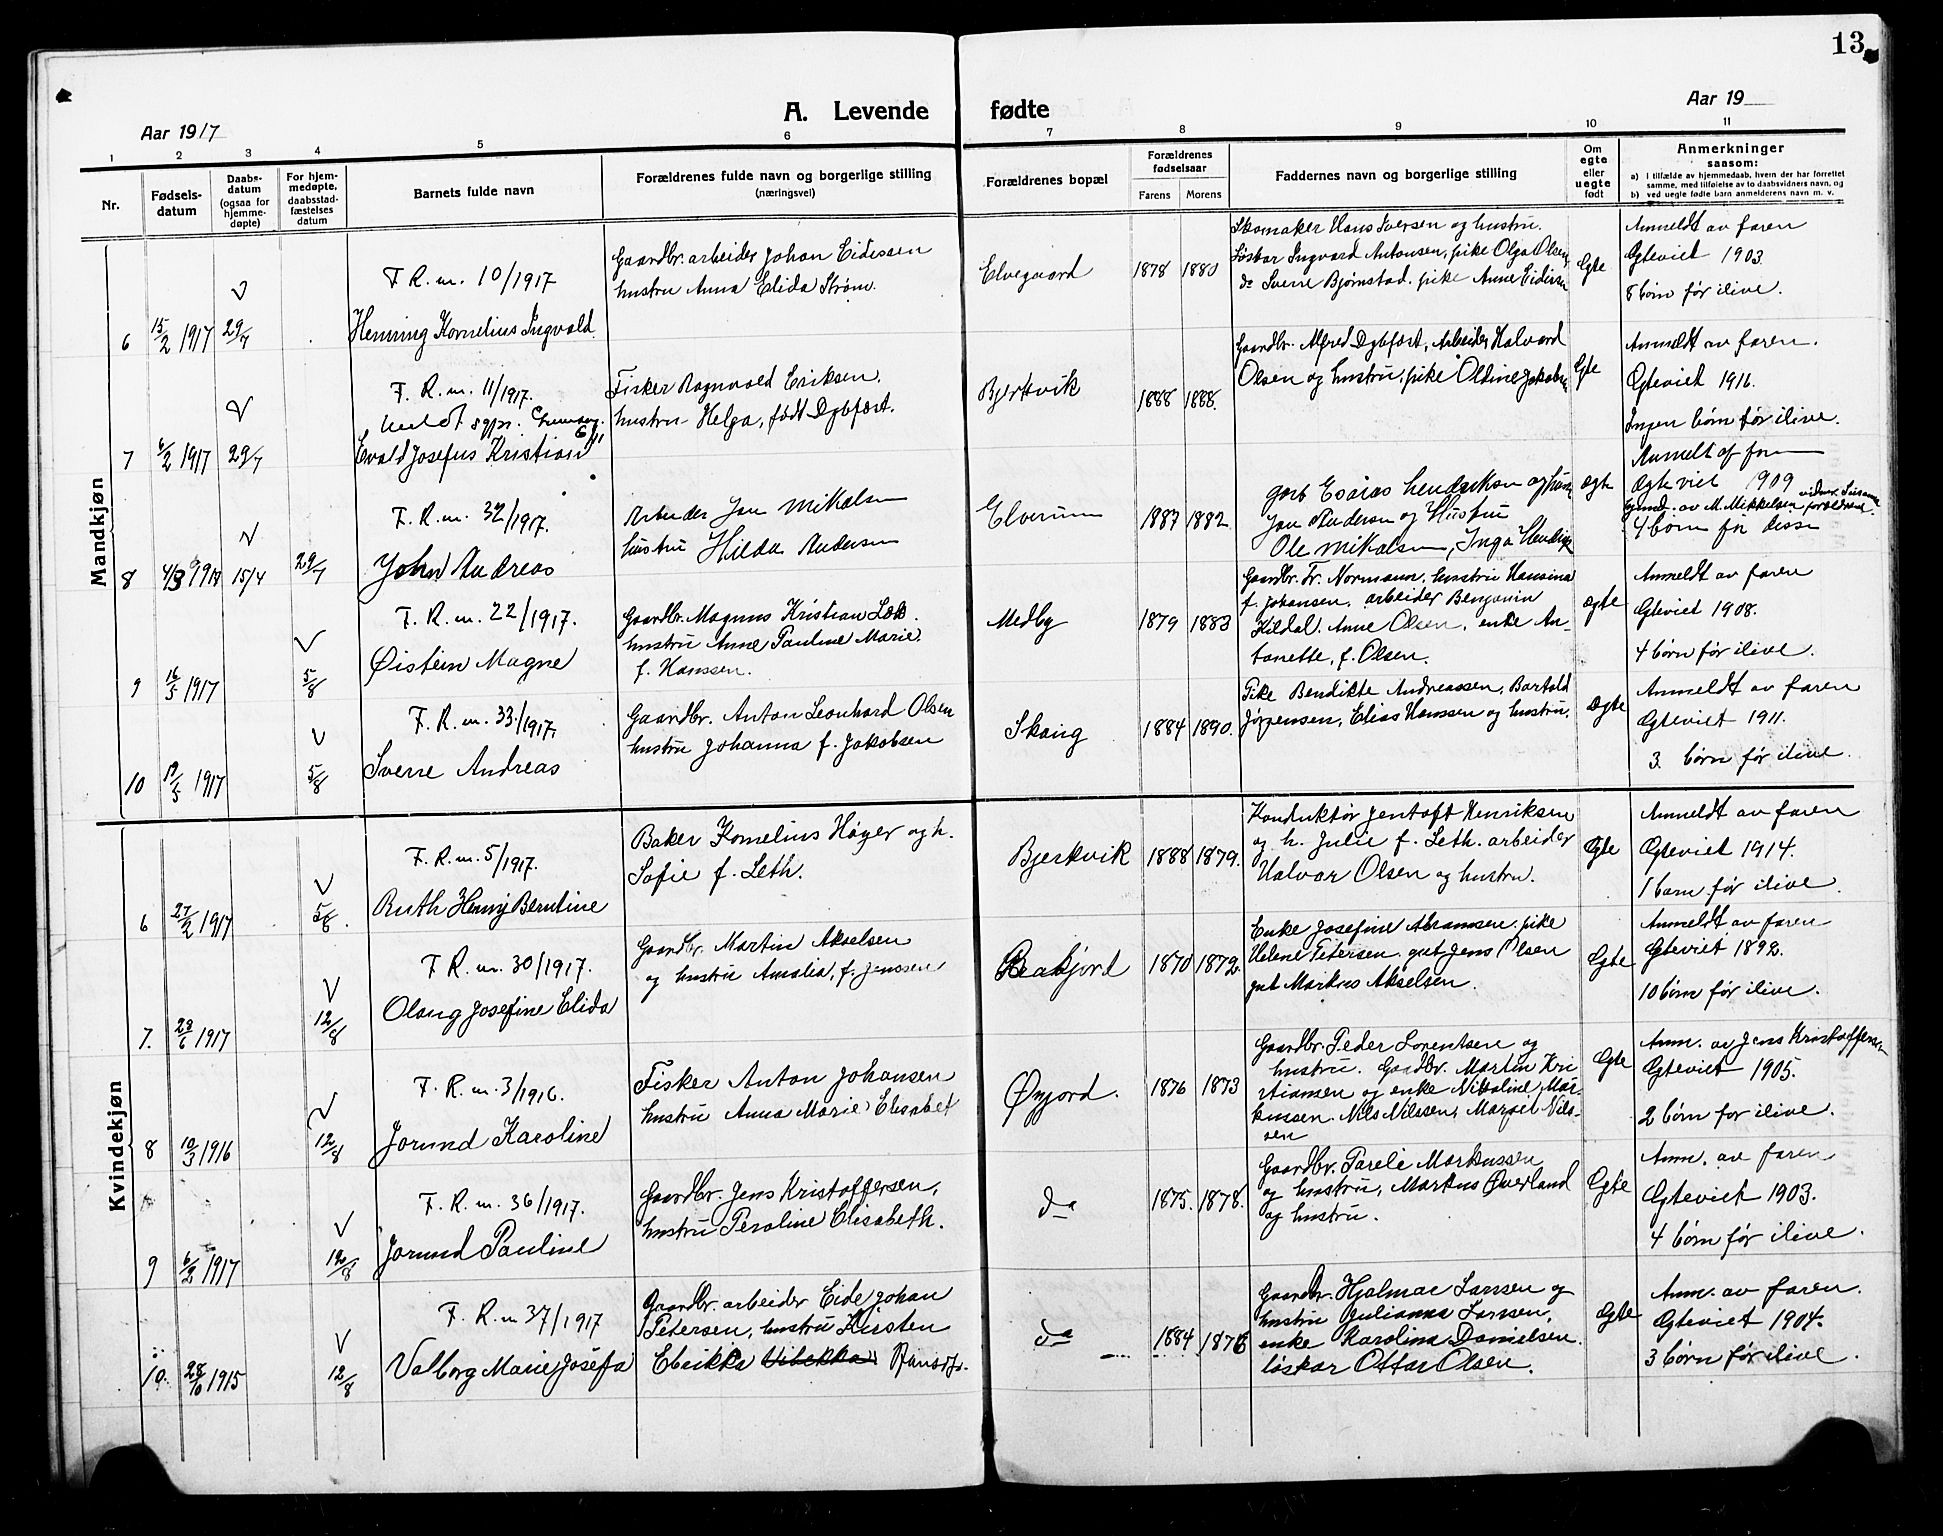 13
A. Levende fødte
Aar 1917
Aar 19
1 2 3 4 5 6 7 8 9 10 11
Nr.
Fødsels-
datum
Daabs-
datum
(ogsaa for
hjemme-
døpte)
For hjem-
medøpte,
daabsstad-
fæstelses
datum
Barnets fulde navn
Forældrenes fulde navn og borgerlige stilling
(næringsvei)
Forældrenes bopæl
Forældrenes
fødselsaar
Farens Morens
Faddernes navn og borgerlige stilling
Om
egte
eller
uegte
født
Anmerkninger
saasom:
a) i tilfælde av hjemmedaab, hvem der har forrettet
samme, med tilføielse av to daabsvidners navn, og
b) ved uegte fødte barn anmelderens navn m. v.
Mandkjøn
6 15/2 1917 29/7
F. R. m. 10/1917
Henning Kornelius Ingvald
Gaardbr. arbeider Johan Eidissen
hustru Anna Elida Strøm.
Elvegaard
1878 1880
Skomaker Hans Iversen og hustru.
Løskar Ingvard Antonsen, pike Olga Olsen,
do Sverre Bjørnstad. pike Anne Eidissen
Egte
Anmeldt av faren
Egteviet 1903.
8 børn før ilive.
7 6/2 1917 29/7
F. R. m. 11/1917.
Evald Josefus Kristian
Fisker Ragnvald Eriksen.
hustru Helga, født Dybfest.
Bjerkvik
1888 1888.
Gaardbr. Alfred Dybfest, Arbeider Halvard
Olsen og hustru, pike Oldine Jakobsen
Egte
Anmeldt av faren.
Egteviet 1916.
Ingen børn før ilive.
8 4/3 1917 15/4 29/7
F. R. m. 32/1917.
John Andreas
Arbeider Jon Mikalsen
hustru Hilda Andersen
Elverum
1887 1882.
gbr Esaias Hendriksen og hustru
Jon Andersen og Hustru
Ole Mikalsen, Inga Hendrik
Ægte
Anmelt af faren
Ægteviet 1909
av M. Mikkelsen
4 børn før disse
9 16/5 1917 5/8
F. R. m. 22/1917.
Øistein Magne
Gaardbr. Magnus Kristian
hustru Anne Pauline Marie
f. Hanssen.
Medby
1879 1883
Gaardbr. Fr. Normann. hustru Hansina
f. Johansen. arbeider Benjamin
Kildal. Anne Olsen. enke An-
tonette, f. Olsen.
Ægte
Anmeldt av faren
Egteviet 1908.
4 børn før ilive.
10 19/5 1917 5/8
F. R. m. 33/1917.
Sverre Andreas
Gaardbr. Anton Leonhard Olsen
hustru Johanna f. Jakobsen
Skoug
1884 1890.
Pike Bendikte Andreassen, Bartold
Jørgensen, Elias Hanssen og hustru.
Ægte
Anmeldt av faren
Egteviet 1911.
3 børn før ilive.
Kvindekjøn
6 27/2 1917 5/8.
F. R. m. 5/1917.
Ruth Henny Berntine
Baker Kornelius Høyer og h.
Sofie f. Leth.
Bjerkvik
1888 1879.
Konduktør Jentoft Henriksen
og h. Julie f. Leth. arbeider
Halvar Olsen og hustru.
Egte
Anmeldt av faren
Egteviet 1914.
1 barn før ilive.
7. 23/6 1917 12/8
F. R. m. 30/1917.
Olaug Josefine Elida
Gaardbr. Martin Akselsen
og hustru Amalia, f. Jenssen
1870 1872.
Enke Josefine Abramsen, pike
Helene Petersen. gut Jens Olsen
gut Markus Akselsen.
Egte
Anmeldt av faren
Egteviet 1892.
10 børn før ilive.
8 10/3 1916 12/8
F. R. m. 3/1916.
Jorund Karoline
Fisker Anton Johansen
hustru Anna Marie Elisabet
Øyjord.
1876 1873
Gaardbr. Peder Lorentsen og
hustru. Gaardbr. Martin Kri
stiansen og enke Nikoline Mar-
kussen. Nils Nilssen, Margit Nils-
sen
Egte
Anm. av Jens Kristoffersen
Egteviet 1905.
2 børn før ilive.
9 6/2 1917 12/8
F. R. m. 36/1917.
Jorund Pauline
Gaardbr. Jens Kristoffersen,
hustru Peroline Elisabeth.
do
1875. 1878.
Gaardbr. Parele Markussen
og hustru, Markus Øverland
og hustru.
Egte
Anm. av faren
Egteviet 1903.
4 børn før ilive.
10. 28/6 1915 12/8
F. R. m 37/1917
Valborg Marie Josefa
Gaardbr. arbeider Eide Johan
Petersen, hustru Kirsten
do
1884 1876
Gaardbr. Hjalmar Larsen og
hustru Julianna Larsen,
enke Karolina Danielsen
løskar Ottar Olsen.
Egte
Anm. av faren.
Egteviet 1904.
3 børn før ilive.